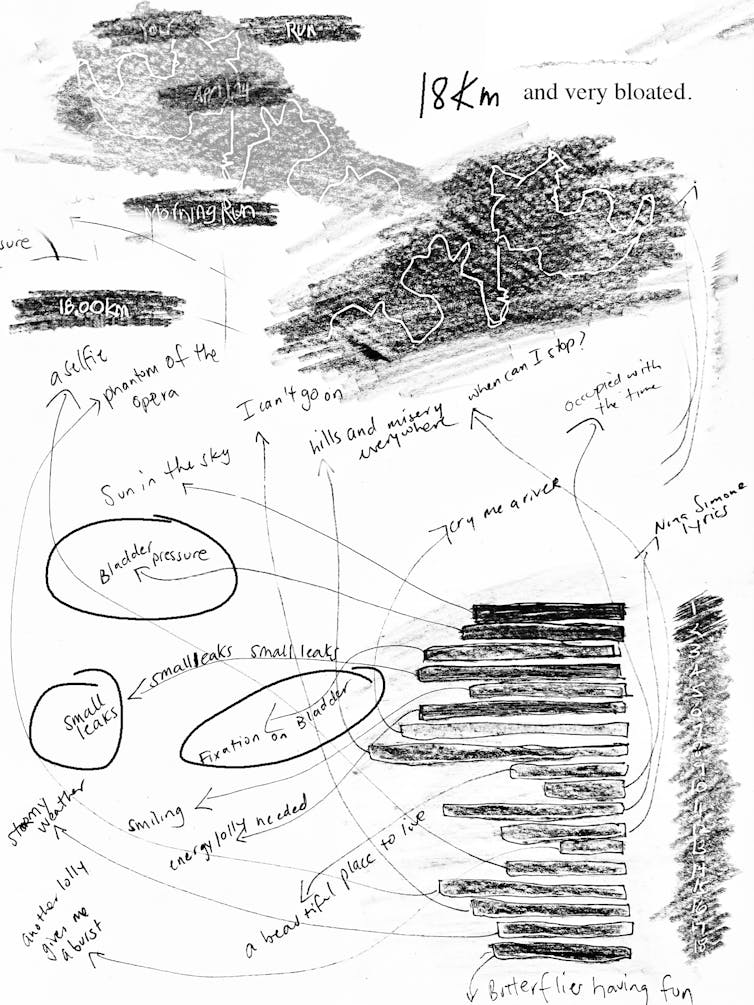 Your Run
April 14
18Km and very bloated.
Morning Run
18.00km
a selfie
phantom of the
opera
I can't go on
hills and misery
everywhere
when can I stop?
occupied with
the time
Sun in the sky
cry me a river
Nina Simone
lyrics
Bladder pressure
small leaks small leaks
small
leaks
Fixation on Bladder
smiling
energy lolly needed
stormy
weather
a beautiful place to live
another lolly
gives me
a burst
Butterflies having fun
1
2
3
4
5
6
7